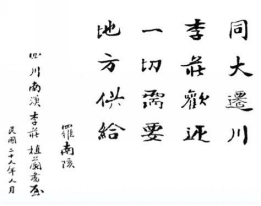 同大遷川
李莊歡迎
一切需要
地方供給
羅南陔
四川南溪李莊植蘭書屋
民國二十八年八月